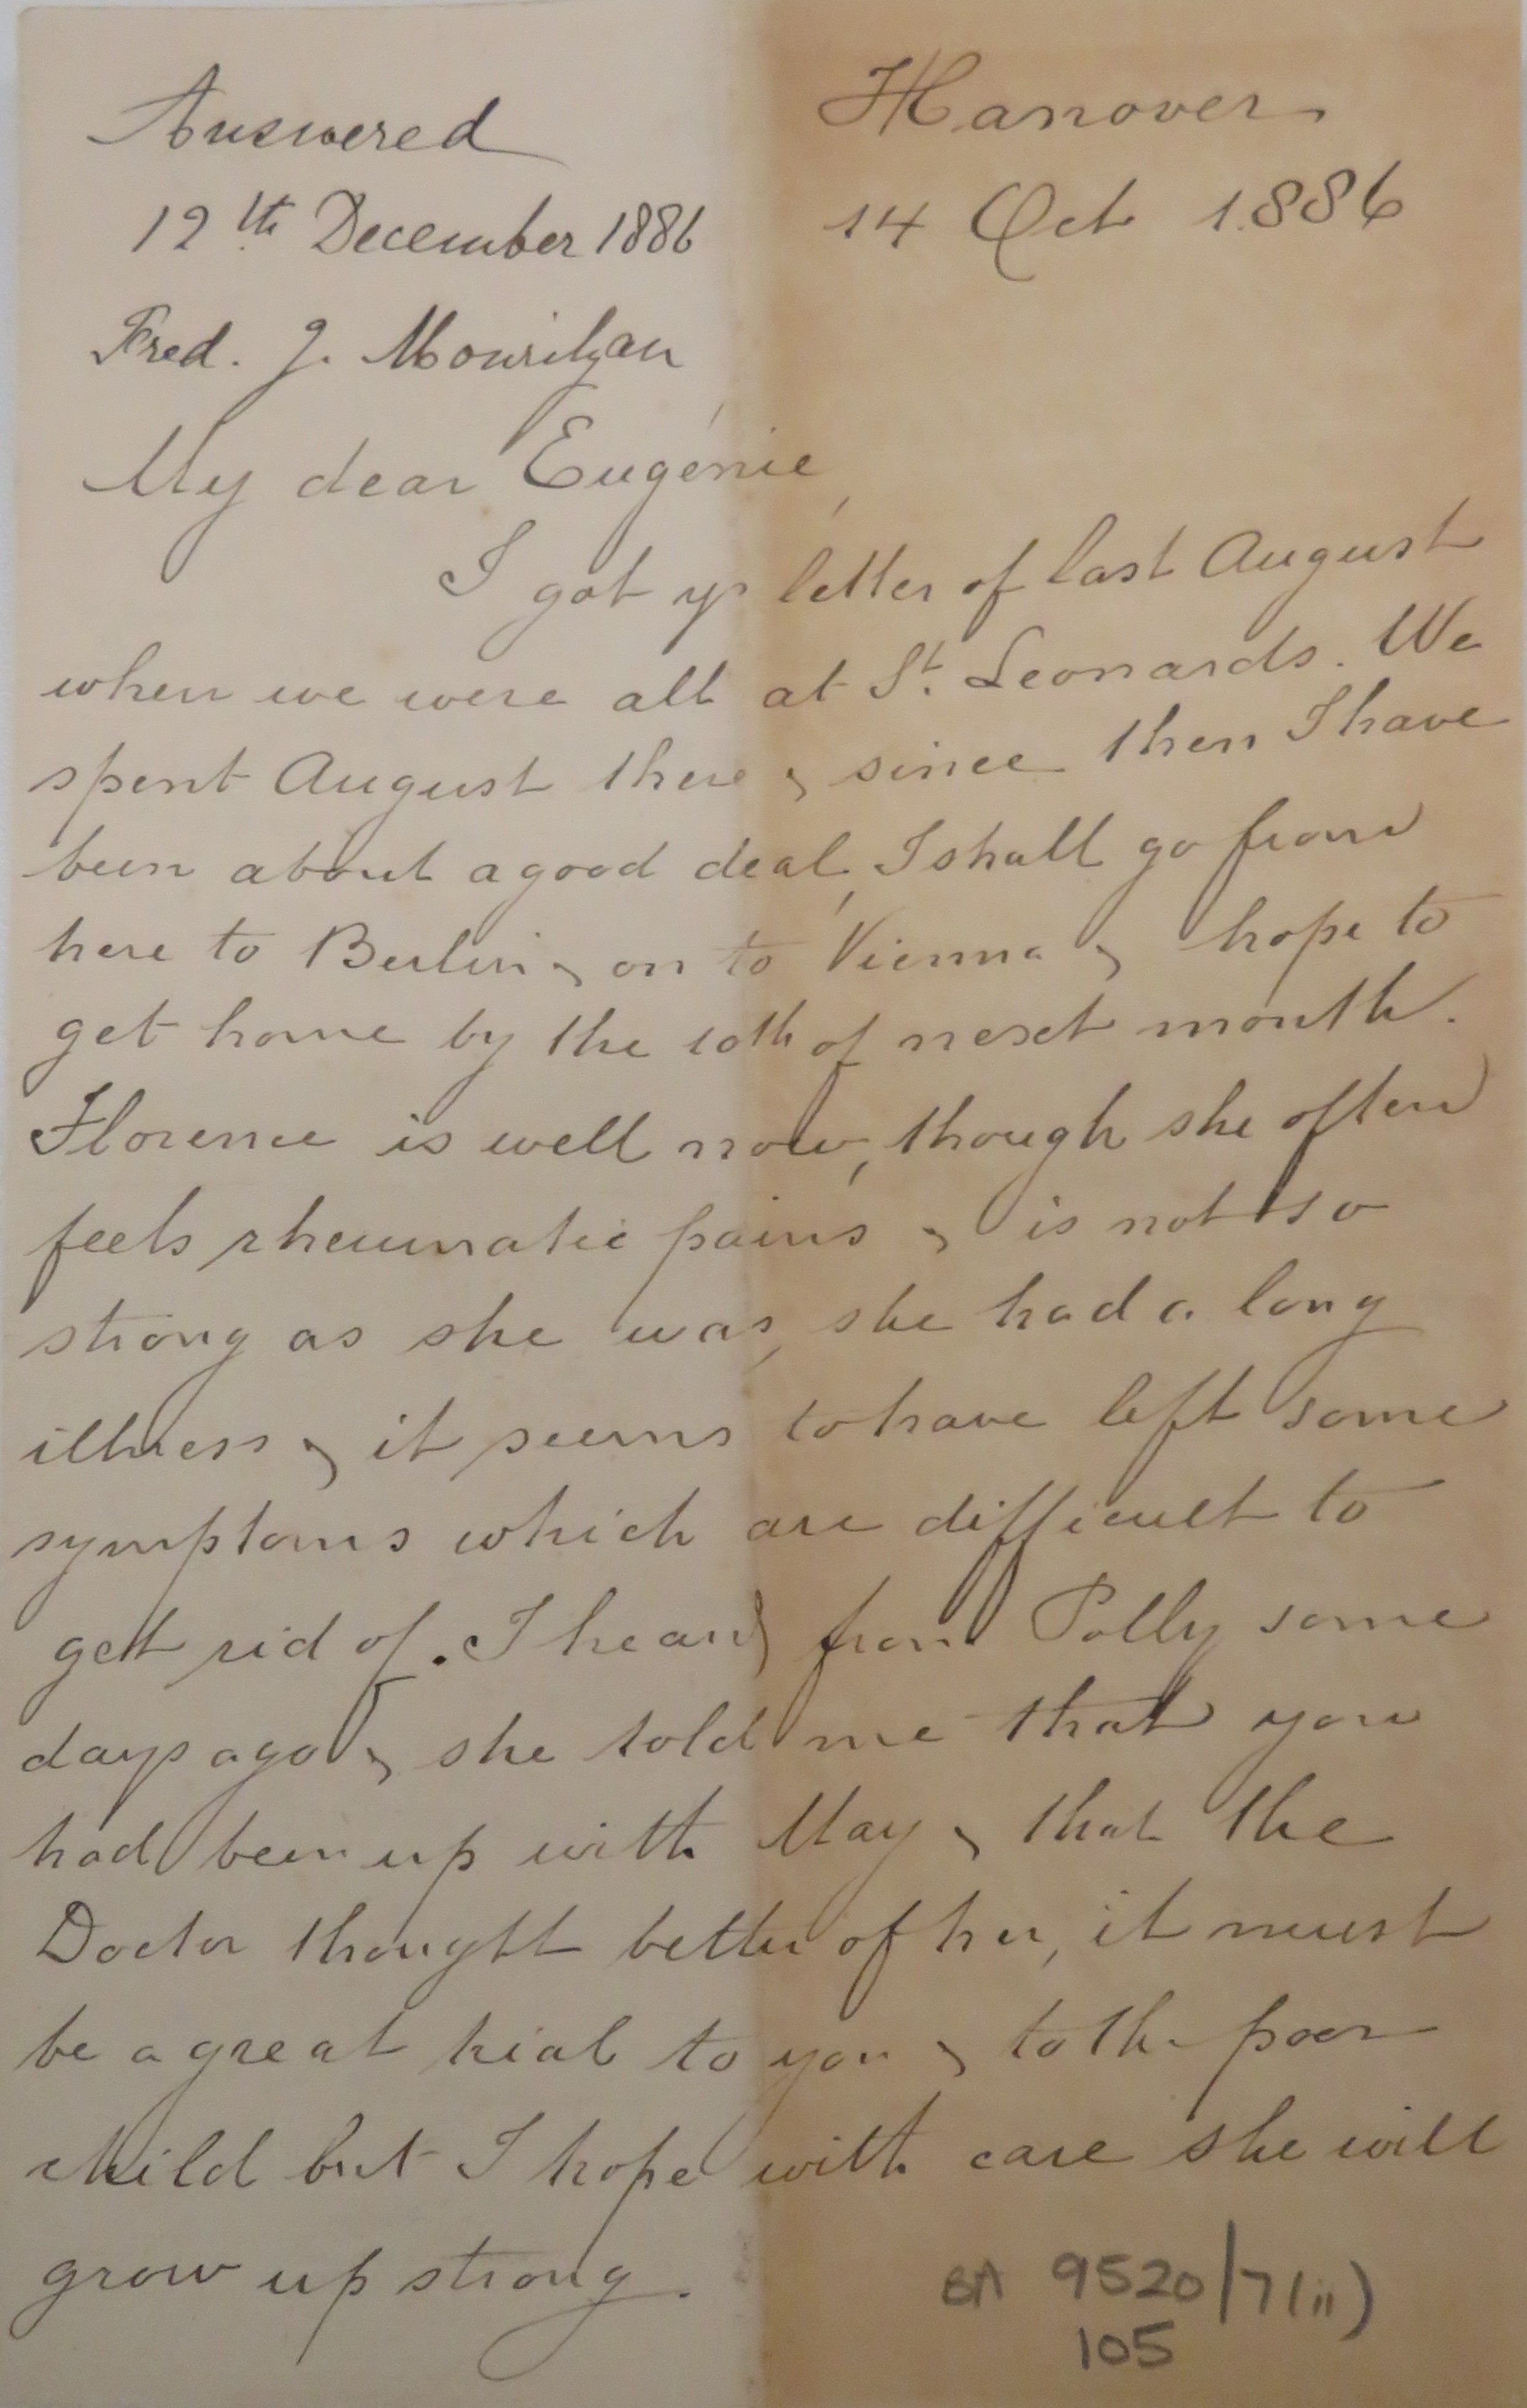 Answered
12th December 1886
Fred. J. Mourilyan
Hanover
14 Oct 1886
My dear Eugénie,
I got yr letter of last August
when we were all at St. Leonards. We
spent August there & since then I have
been about a good deal, I shall go from
here to Berlin & on to Vienna & hope to
get home by the 10th of next month.
Florence is well now, though she often
feels rheumatic pains & is not so
strong as she was, she had a long
illness & it seems to have left some
symptoms which are difficult to
get rid of. I heard from Polly some
days ago & she told me that you
had been up with May & that the
Doctor thought better of her, it must
be a great trial to you & to the poor
child but I hope with care she will
grow up strong.
BA 9520/7(ii)
105